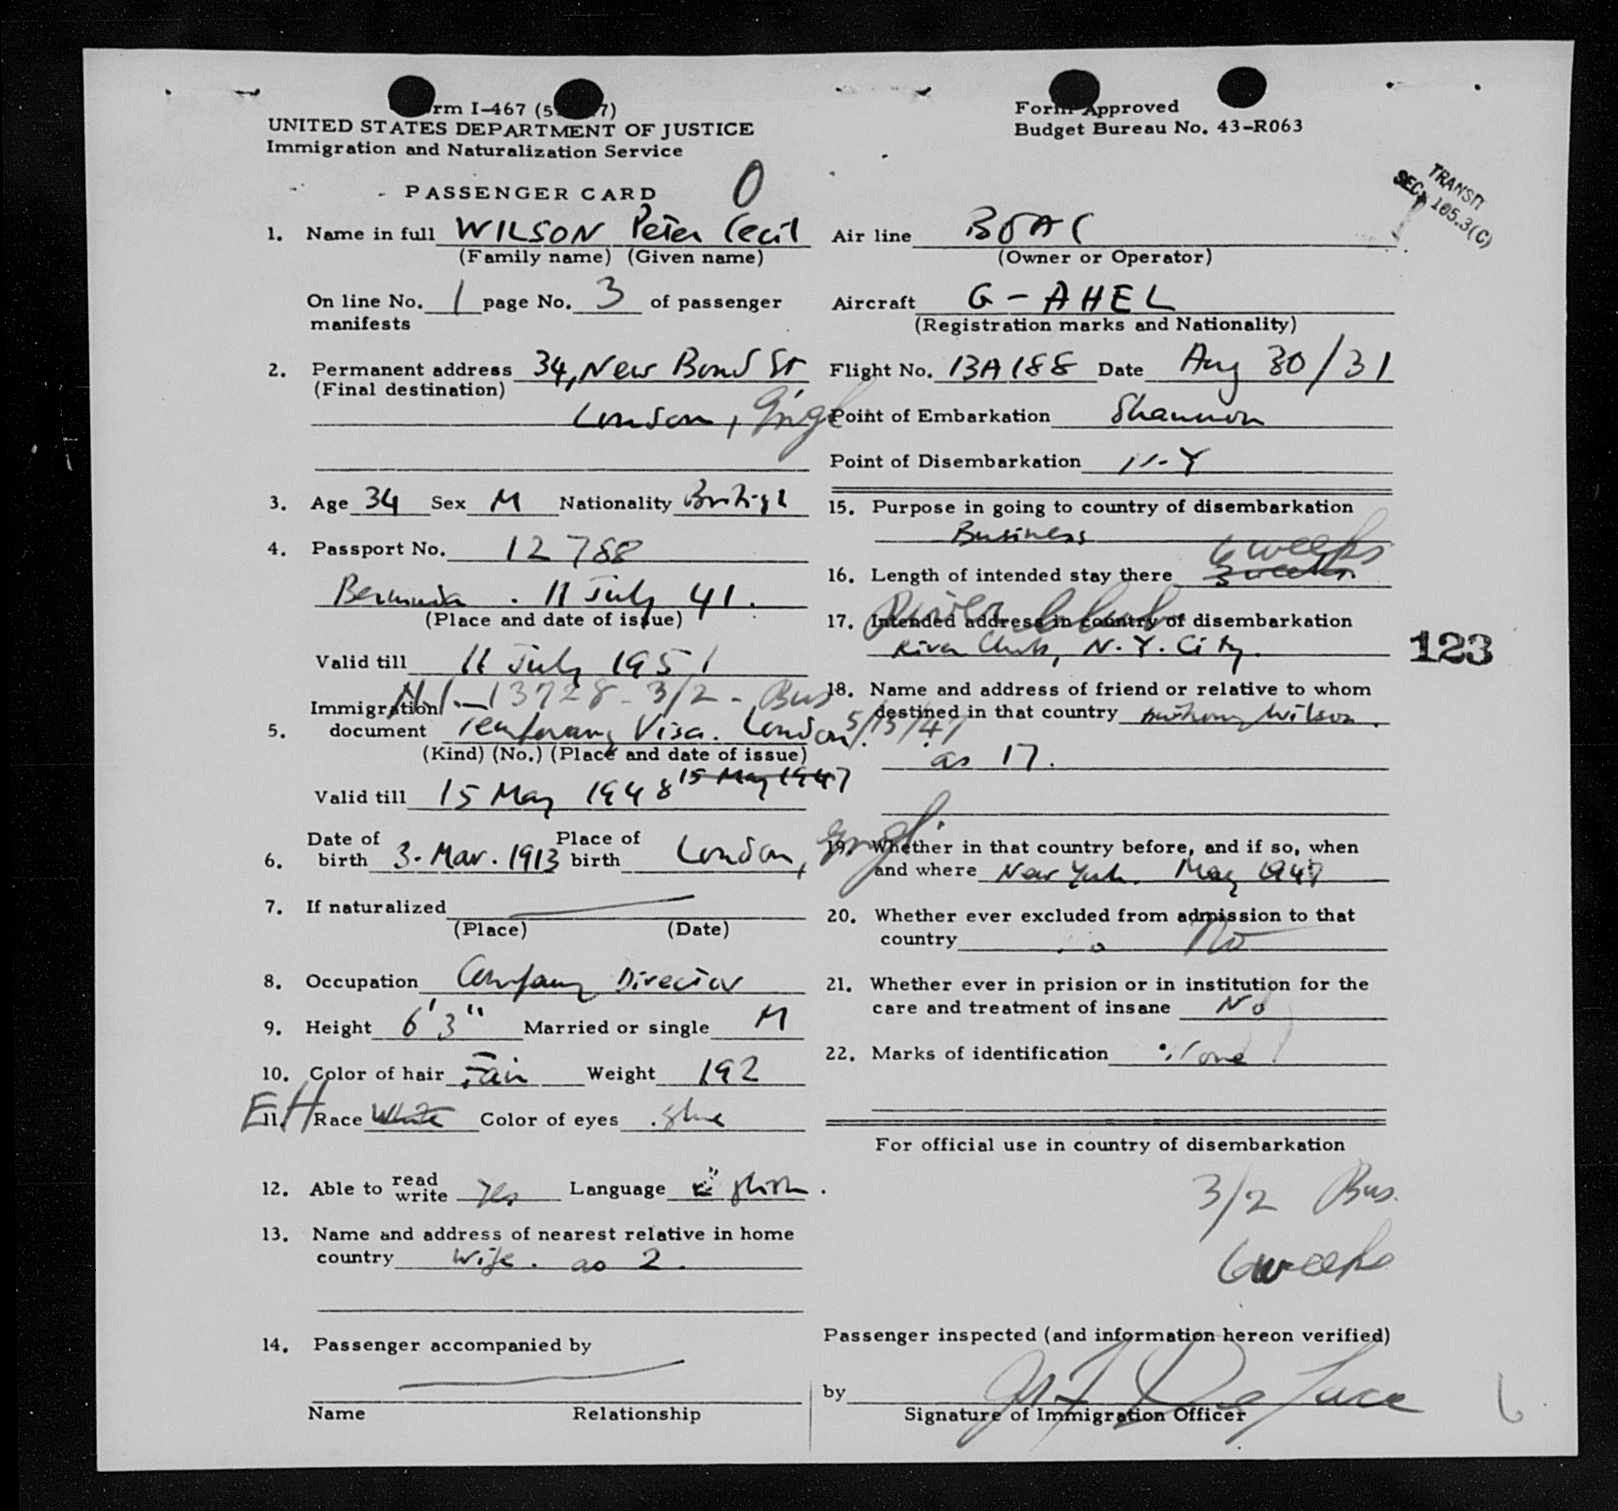 rm I-467 (5 7)
UNITED STATES DEPARTMENT OF JUSTICE
Immigration and Naturalization Service
Form Approved
Budget Bureau No. 43-R063
PASSENGER CARD O
TRANSIT
SEC. 105.3(C)
1. Name in full WILSON Peter Cecil
(Family name) (Given name)
On line No. 1 page No. 3 of passenger
manifests
2. Permanent address 34, New Bond St
(Final destination)
London, Engl
3. Age 34 Sex M Nationality British
4. Passport No. 12788
Bermuda . 11 July 41.
(Place and date of issue)
Valid till 11 July 1951
13728 - 3/2 - Bus
Immigration
5. document Temporary Visa. London 5/15/47
(Kind) (No.) (Place and date of issue)
15 May 1947
Valid till 15 May 1948
6. Date of birth 3. Mar. 1913 Place of birth London, Engl.
7. If naturalized
(Place) (Date)
8. Occupation Company Director
9. Height 6'3" Married or single M
10. Color of hair Fair Weight 192
EH
11. Race White Color of eyes Blue
12. Able to read write Yes Language English.
13. Name and address of nearest relative in home
country Wife. as 2.
14. Passenger accompanied by
Name Relationship
Air line BOAC
(Owner or Operator)
Aircraft G-AHEL
(Registration marks and Nationality)
Flight No. BA188 Date Aug 30/31
Point of Embarkation Shannon
Point of Disembarkation N.Y
15. Purpose in going to country of disembarkation
Business
6 weeks
16. Length of intended stay there 3 weeks
River Club
17. Intended address in country of disembarkation
River Club, N.Y. City.
123
18. Name and address of friend or relative to whom
destined in that country Anthony Wilson.
as 17.
19. Whether in that country before, and if so, when
and where New York. May 1947
20. Whether ever excluded from admission to that
country No
21. Whether ever in prision or in institution for the
care and treatment of insane No
22. Marks of identification None
For official use in country of disembarkation
3/2 Bus.
6 weeks
Passenger inspected (and information hereon verified)
by De Luca
Signature of Immigration Officer